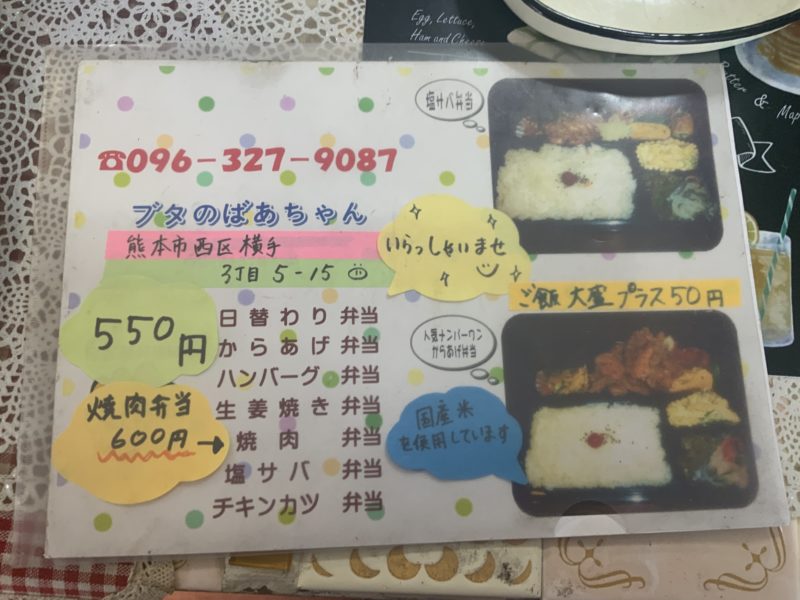 Egg, Lettuce,
Ham and Cheese
塩サバ弁当
& Map
☎096-327-9087
ブタのばあちゃん
熊本市西区横手
3丁目 5-15
いらっしゃいませ
ご飯大盛プラス50円
550円
日替わり弁当
からあげ弁当
ハンバーグ弁当
生姜焼き弁当
焼肉弁当
塩サバ弁当
チキンカツ弁当
焼肉弁当
600円→
人気ナンバーワン
からあげ弁当
国産米
を使用しています